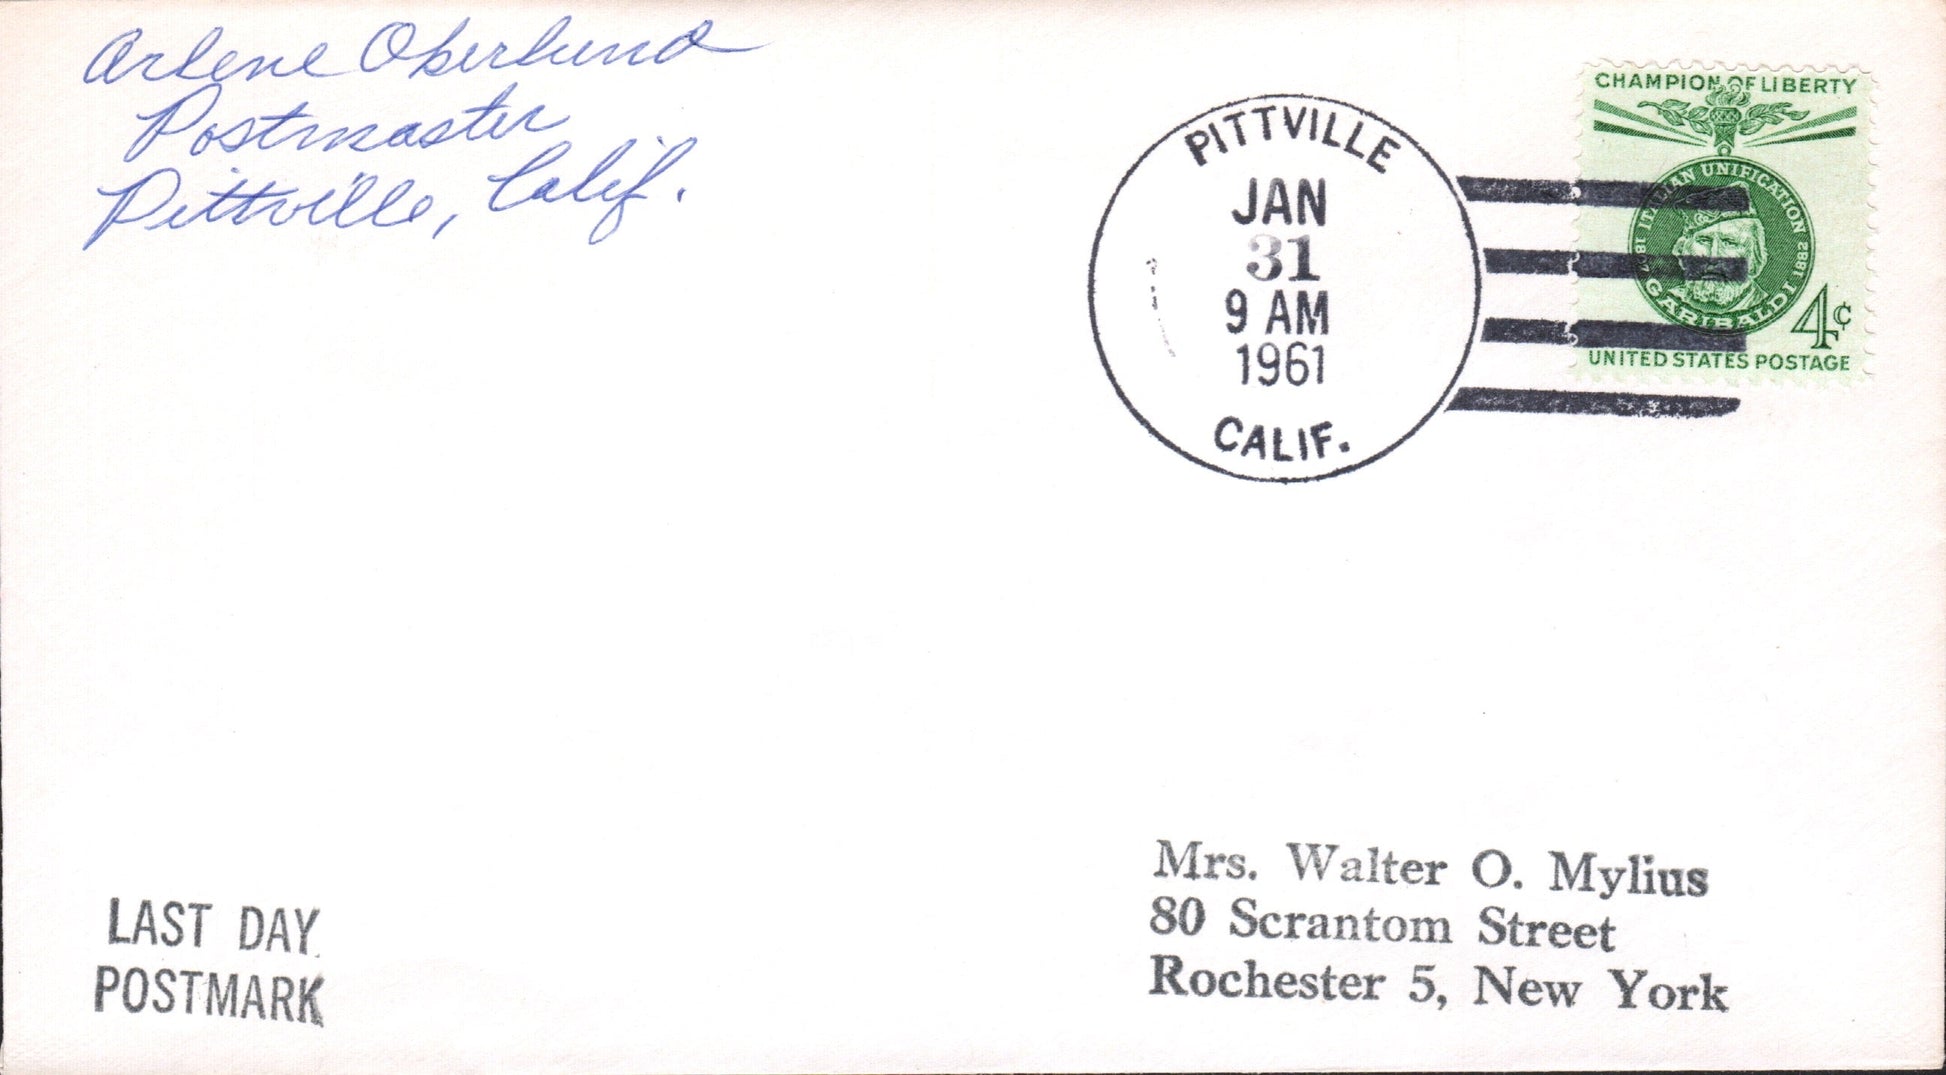 Arlene Oberlund
Postmaster
Pittville, Calif.
PITTVILLE
JAN
31
9 AM
1961
CALIF.
CHAMPION OF LIBERTY
1807 ITALIAN UNIFICATION 1882
GARIBALDI
4¢
UNITED STATES POSTAGE
LAST DAY
POSTMARK
Mrs. Walter O. Mylius
80 Scrantom Street
Rochester 5, New York